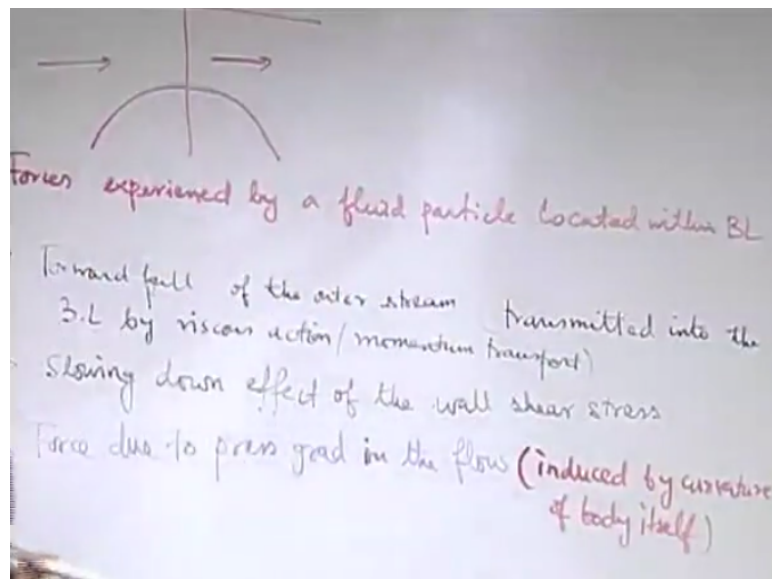 Forces experienced by a fluid particle located within BL
Forward pull of the outer stream transmitted into the
B.L by viscous action/momentum transport)
Slowing down effect of the wall shear stress
Force due to press grad in the flow (induced by curvature
of body itself)